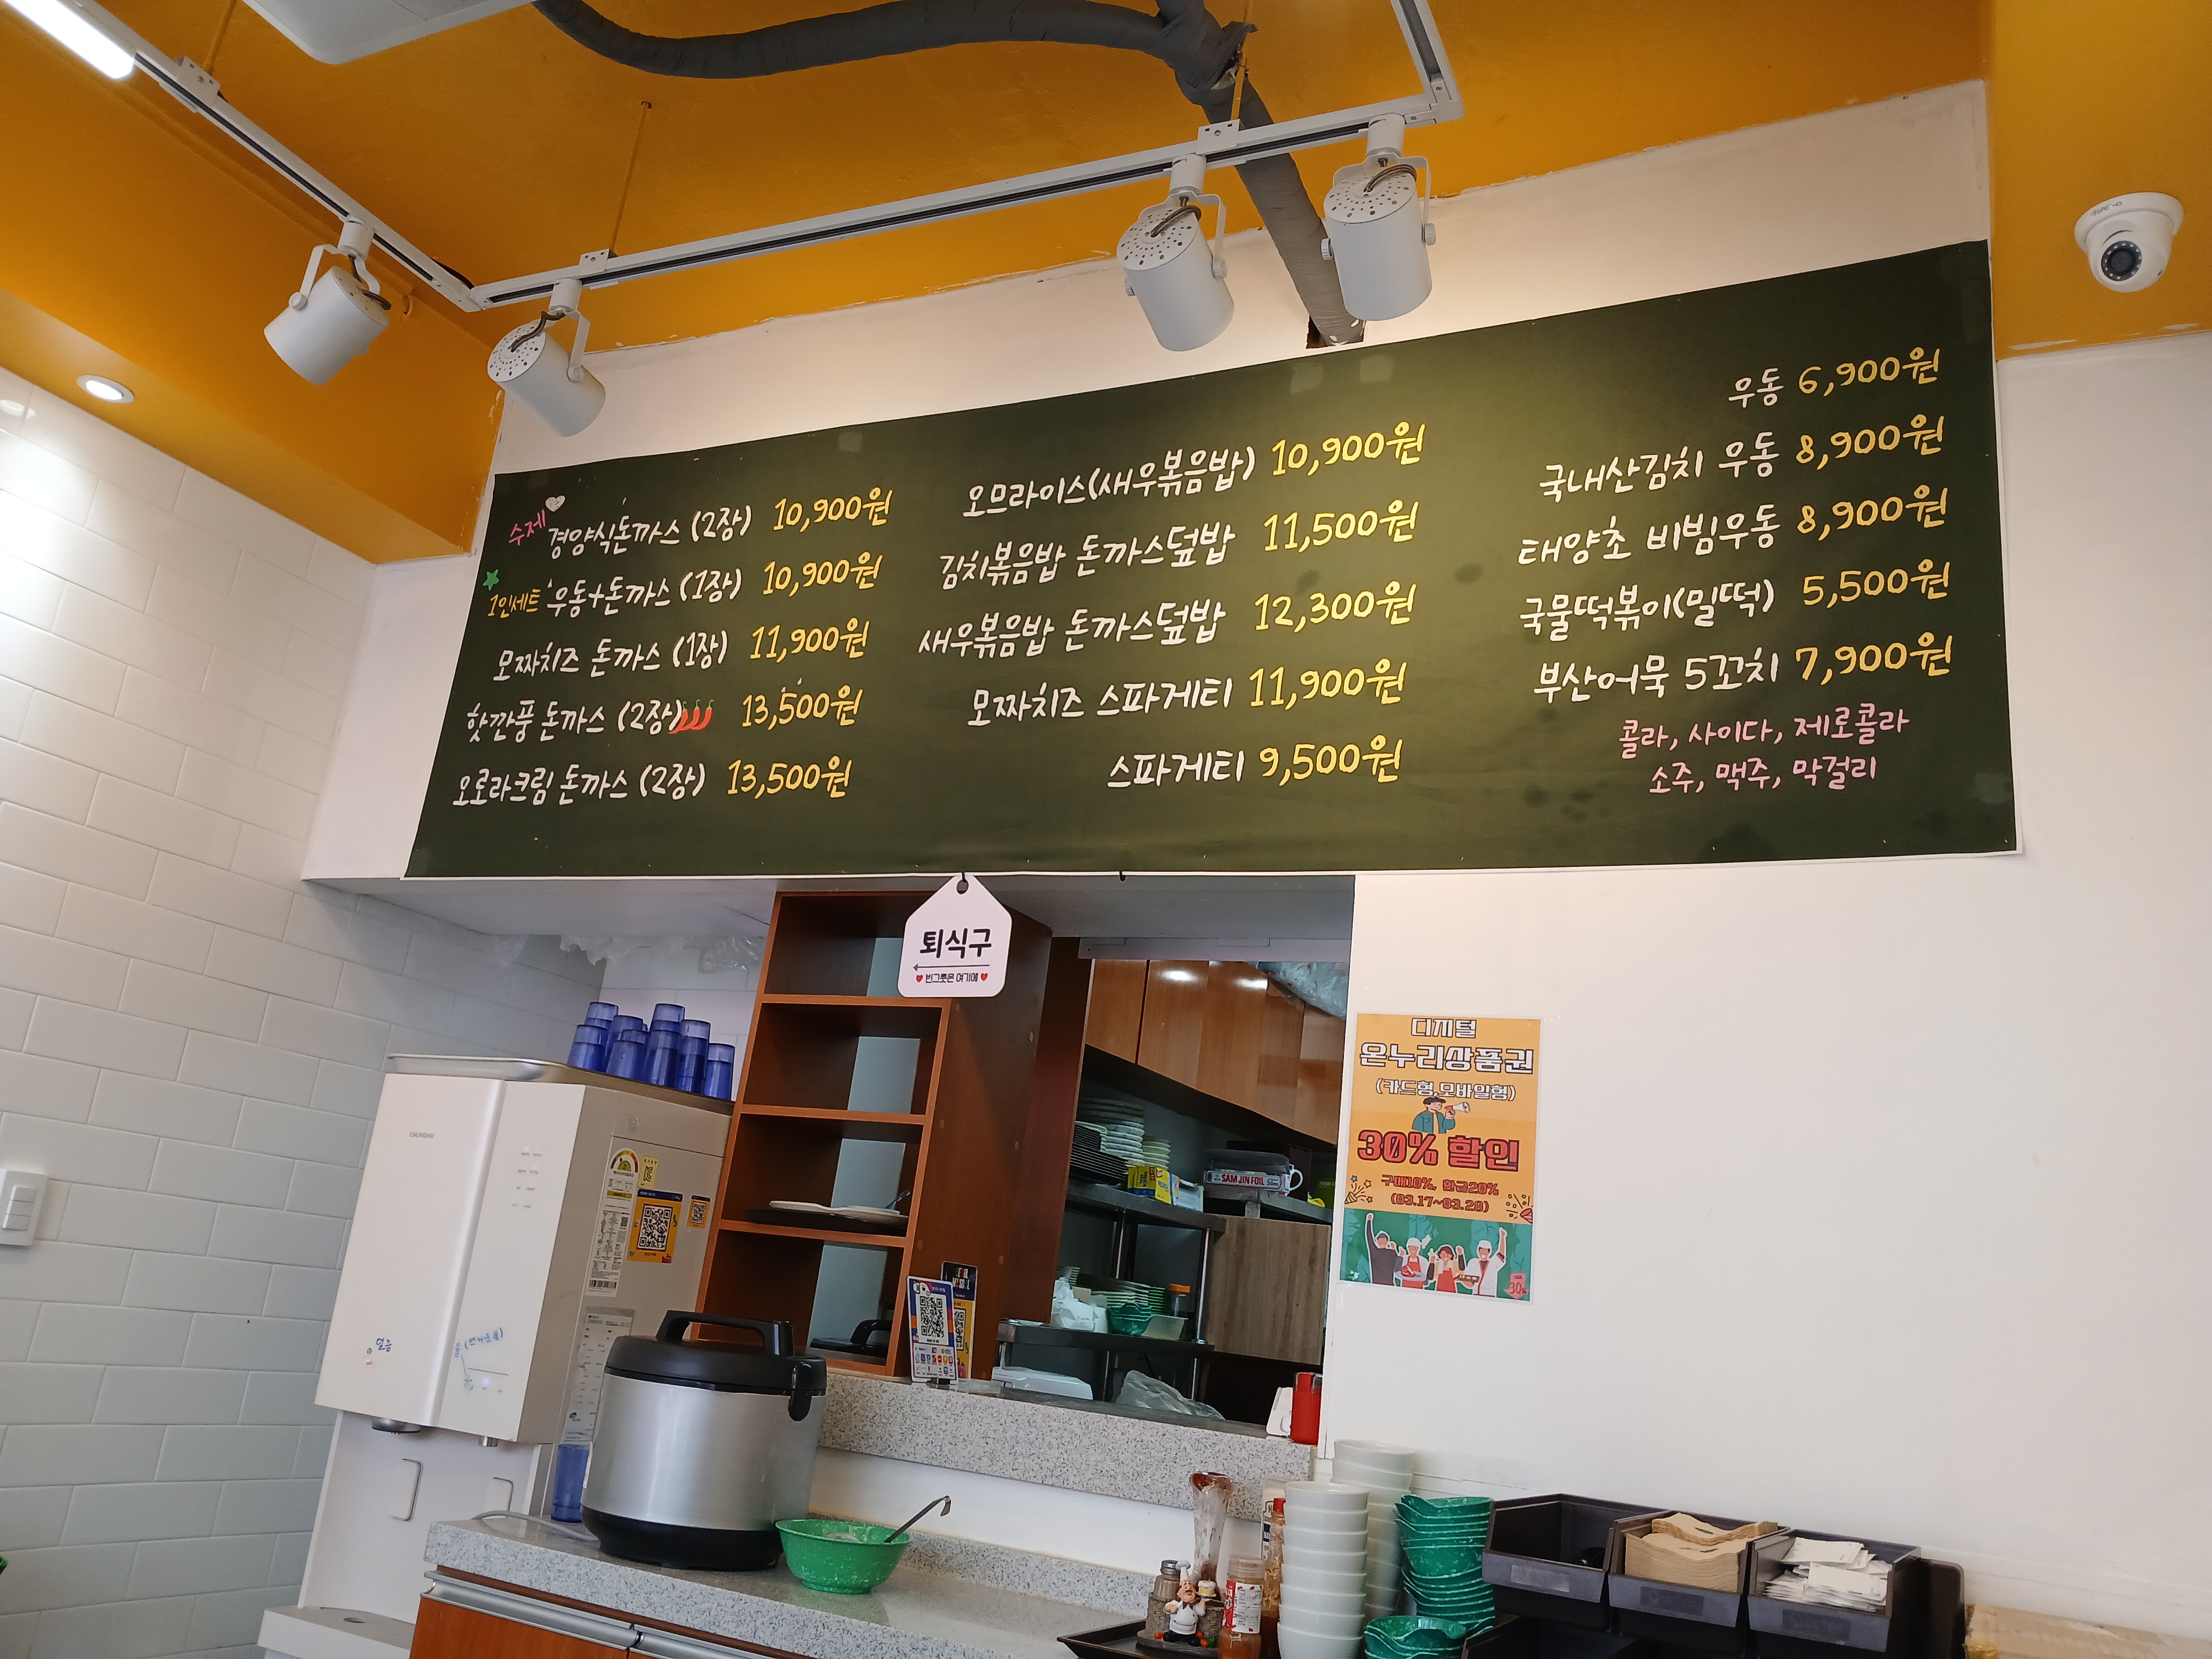 수제 경양식돈까스 (2장) 10,900원
1인세트 우동+돈까스 (1장) 10,900원
모짜치즈 돈까스 (1장) 11,900원
핫깐풍 돈까스 (2장) 13,500원
오로라크림 돈까스 (2장) 13,500원
오므라이스(새우볶음밥) 10,900원
김치볶음밥 돈까스덮밥 11,500원
새우볶음밥 돈까스덮밥 12,300원
모짜치즈 스파게티 11,900원
스파게티 9,500원
우동 6,900원
국내산김치 우동 8,900원
태양초 비빔우동 8,900원
국물떡볶이(밀떡) 5,500원
부산어묵 5꼬치 7,900원
콜라, 사이다, 제로콜라
소주, 맥주, 막걸리
퇴식구
빈그릇은 여기에
디지털
온누리상품권
(카드형,모바일형)
30% 할인
구매10%, 환급20%
(03.17~03.28)
CHUNGHO
얼음
SAM JIN FOIL